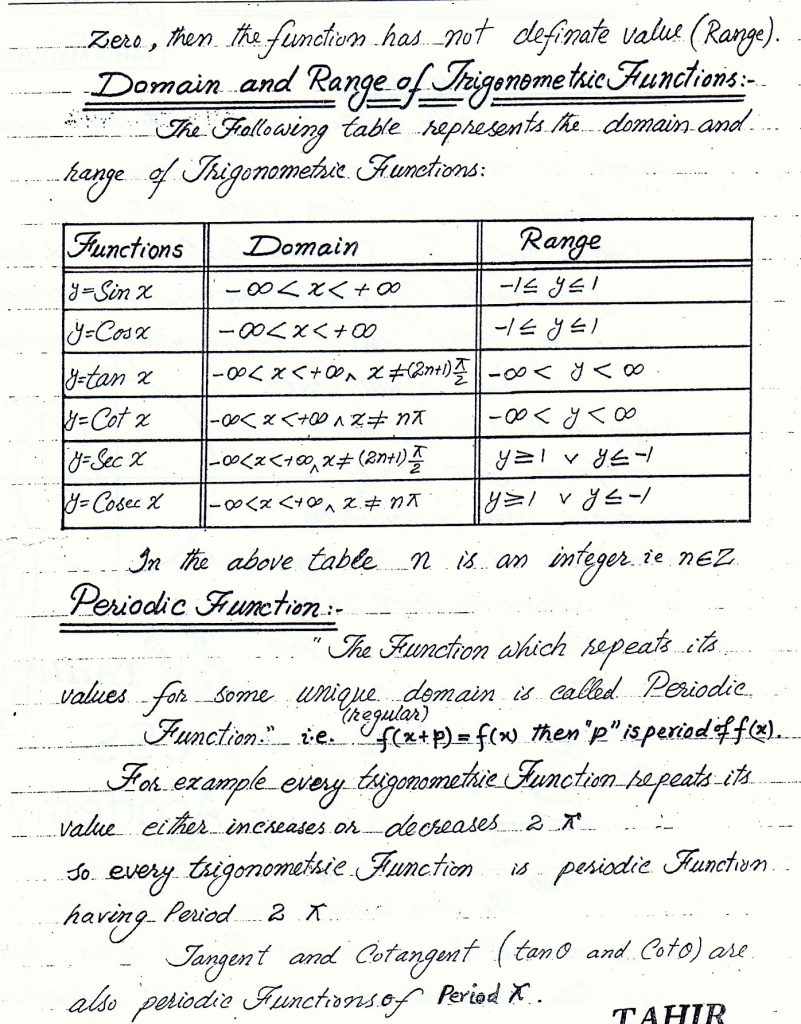 Zero, then the function has not definate value (Range).
Domain and Range of Trigonometric Functions:-
The Following table represents the domain and
range of Trigonometric Functions:
Functions Domain Range
y=Sin x -∞< x< +∞ -1≤ y≤1
y=Cosx -∞<x<+∞ -1≤ y≤1
y=tan x -∞< x<+∞ ∧ x≠(2n+1)π/2 -∞< y<∞
y=Cot x -∞< x<+∞ ∧ x≠ nπ -∞< y<∞
y=Sec x -∞<x<+∞ ∧ x≠ (2n+1)π/2 y≥1 ∨ y≤-1
y=Cosec x -∞<x<+∞ ∧ x≠ nπ y≥1 ∨ y≤-1
In the above table n is an integer ie n∈Z
Periodic Function:-
"The Function which repeats its
values for some unique domain is called Periodic
(regular)
Function." i.e. f(x+p)=f(x) then "p" is period of f(x).
For example every trigonometric Function repeats its
value either increases or decreases 2 π
so every trigonometric Function is periodic Function
having Period 2 π
Tangent and Cotangent (tanθ and Cotθ) are
also periodic Functions of Period π.
TAHIR